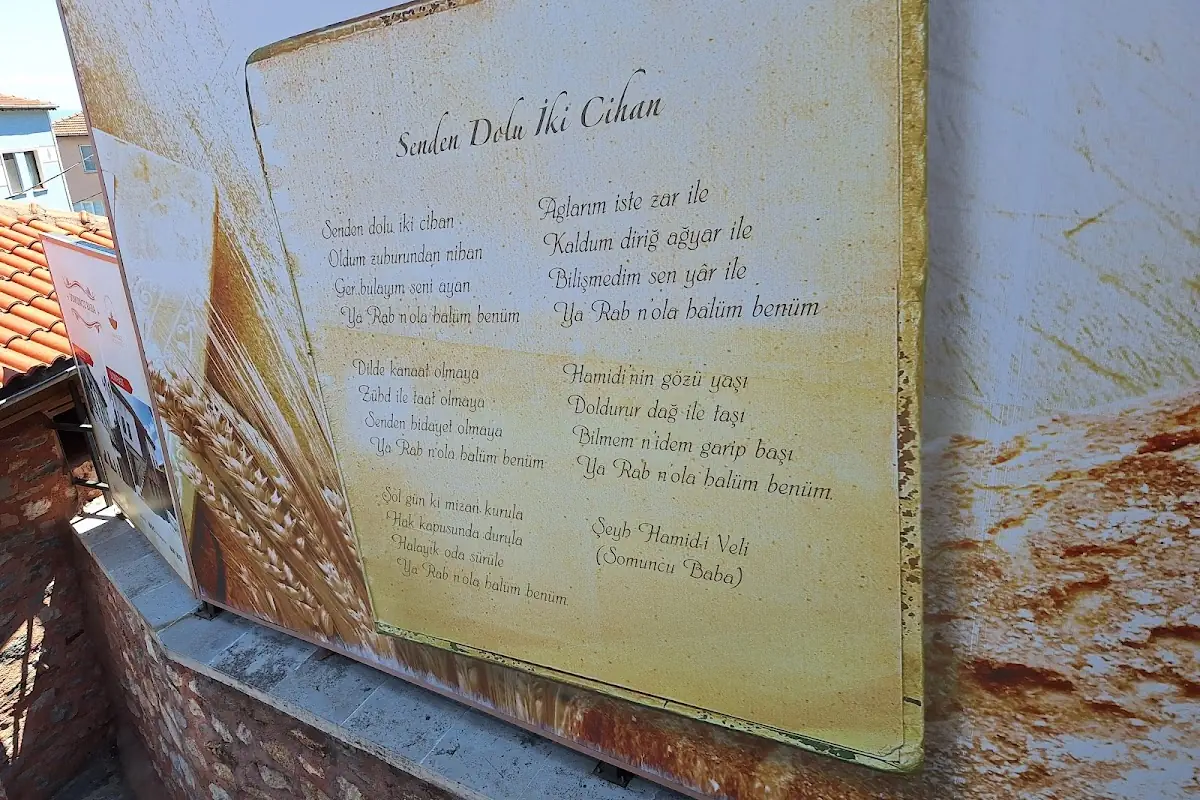 Senden Dolu İki Cihan
Senden dolu iki cihan
Oldum zuhurundan nihan
Ger bulayım seni ayan
Ya Rab n'ola halüm benüm
Dilde kanaat olmaya
Zühd ile taat olmaya
Senden hidayet olmaya
Ya Rab n'ola halüm benüm
Şöl gün ki mizan kurula
Hak kapusunda durula
Halayik oda sürüle
Ya Rab n'ola halüm benüm.
Aglarım iste zar ile
Kaldum diriğ ağyar ile
Bilişmedim sen yâr ile
Ya Rab n'ola halüm benüm
Hamidi'nin gözü yaşı
Doldurur dağ ile taşı
Bilmem n'idem garip başı
Ya Rab n'ola halüm benüm.
Şeyh Hamid-i Veli
(Somuncu Baba)